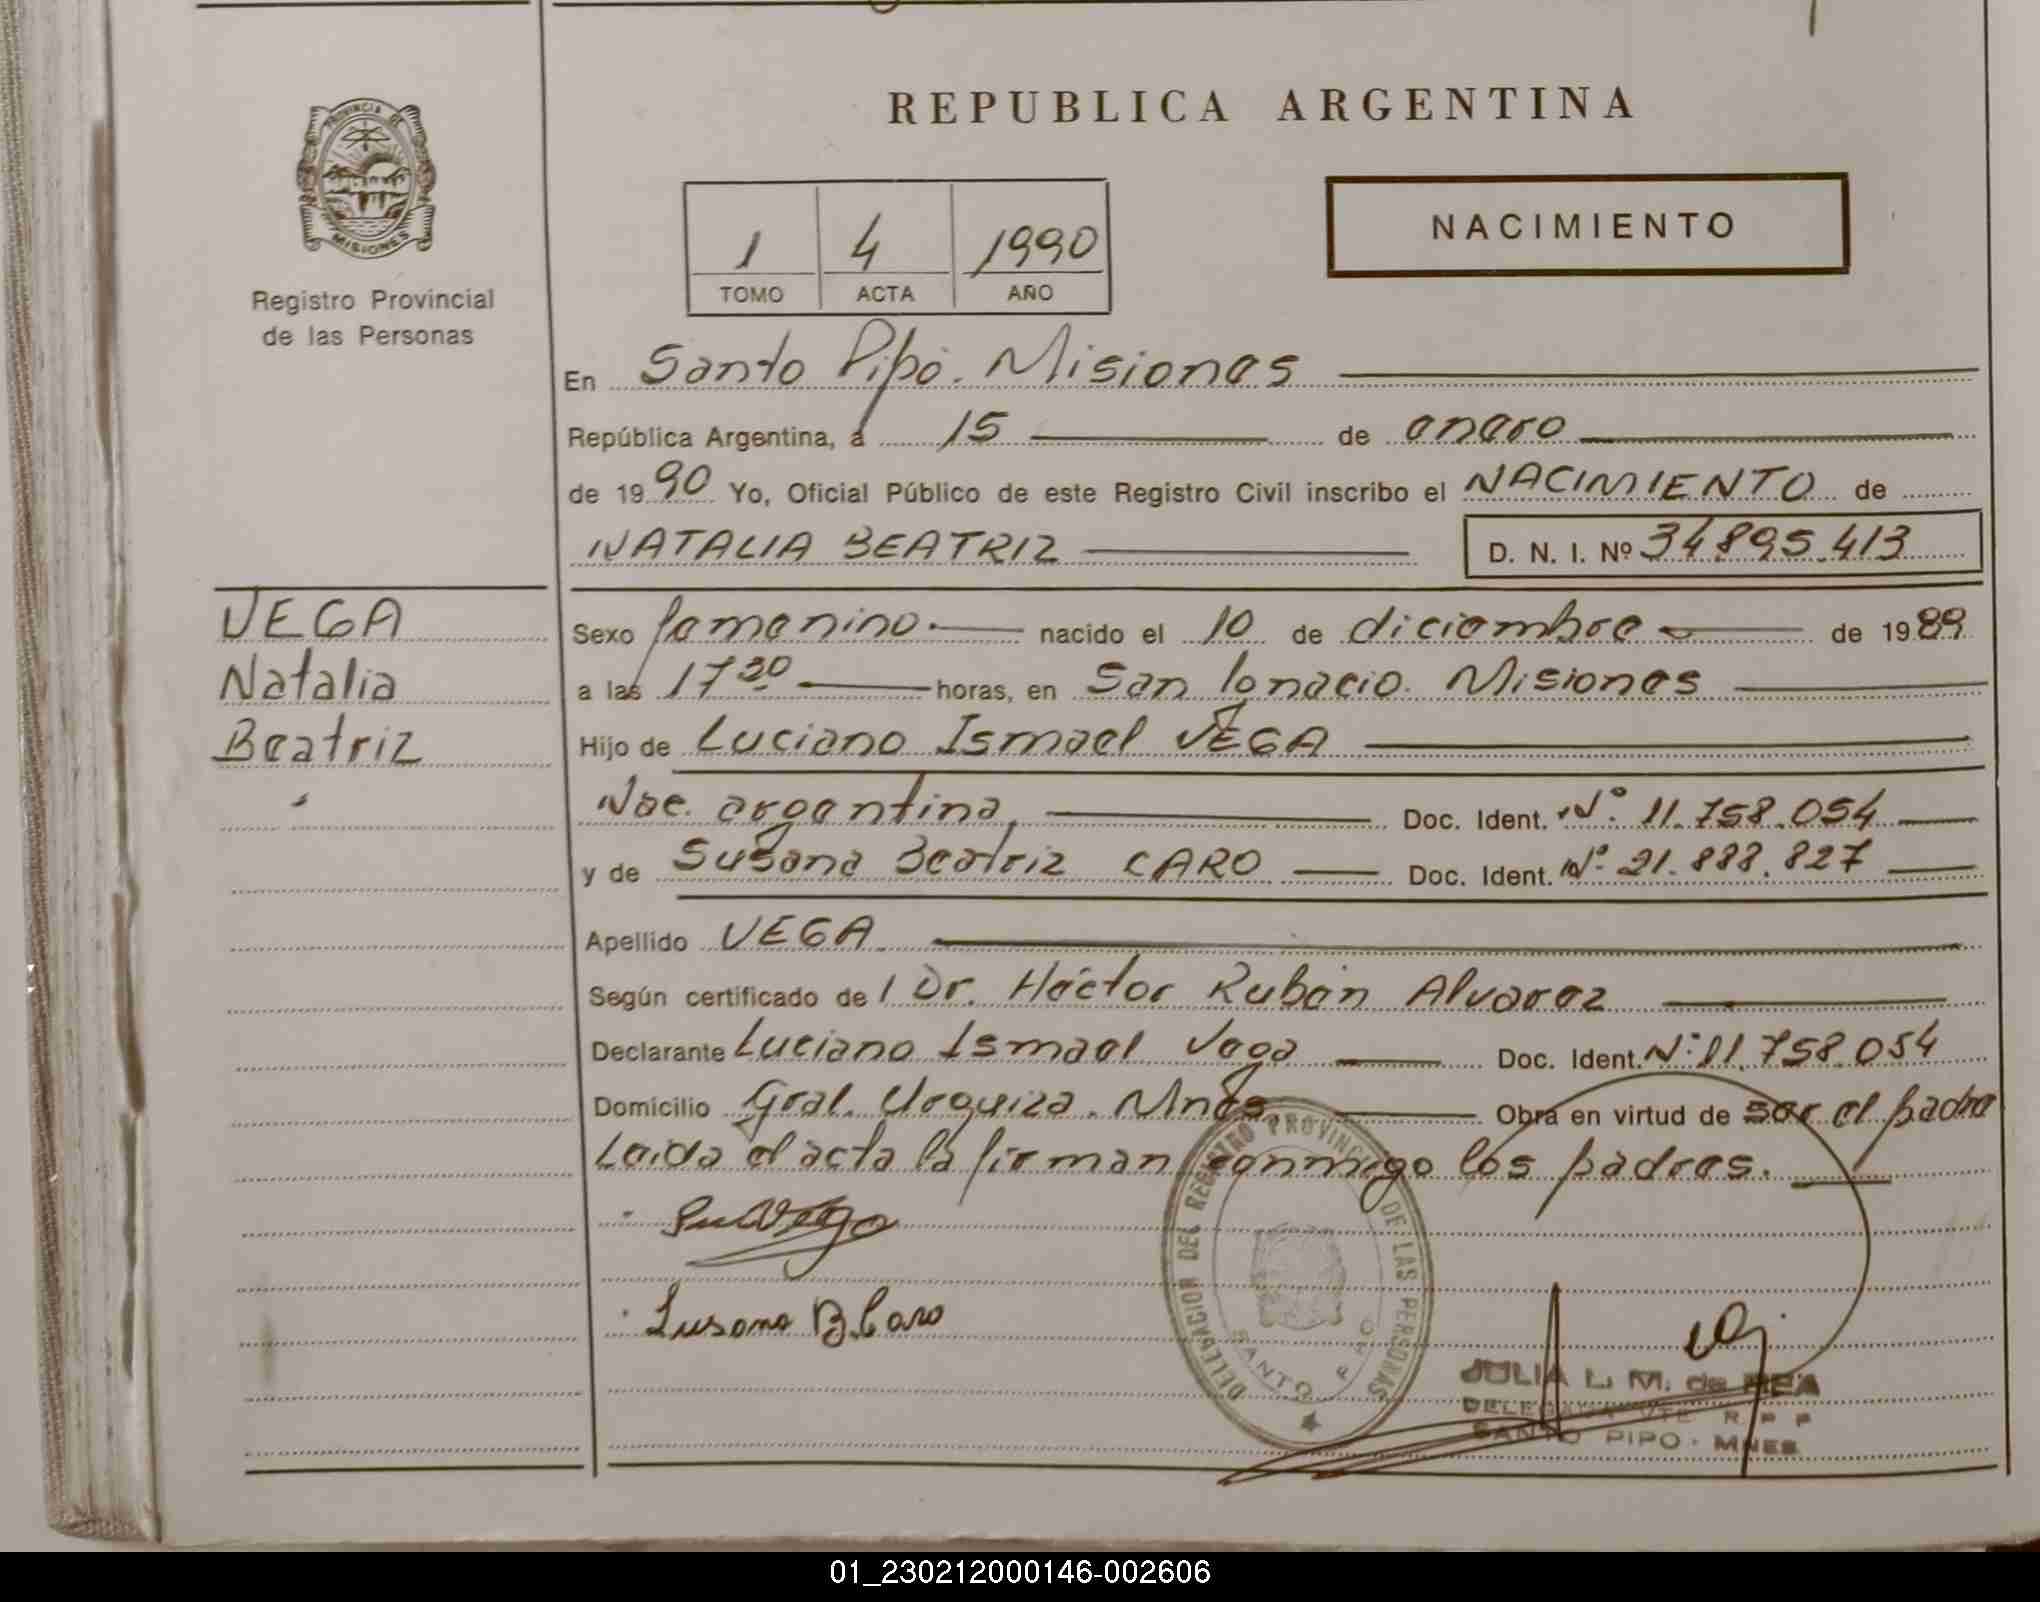 REPUBLICA ARGENTINA
PROVINCIA DE MISIONES
Registro Provincial
de las Personas
1 4 1990
TOMO ACTA AÑO
NACIMIENTO
En Santo Pipó. Misiones
República Argentina, a 15 de enero
de 1990 Yo, Oficial Público de este Registro Civil inscribo el NACIMIENTO de
NATALIA BEATRIZ D. N. I. Nº 34895.413
VEGA
Natalia
Beatriz
Sexo femenino. nacido el 10 de diciembre de 1989
a las 17 30 horas, en San Ignacio. Misiones
Hijo de Luciano Ismael VEGA
Nac. argentina, Doc. Ident. Nº. 11.758.054
y de Susana Beatriz CARO Doc. Ident. Nº. 21.888.827
Apellido VEGA.
Según certificado de l Dr. Héctor Rubén Alvarez
Declarante Luciano Ismael Vega Doc. Ident. Nº 11.758.054
Domicilio Gral. Urquiza. Mnes Obra en virtud de ser el padre
Leida el acta la firman conmigo los padres.
Susana B. Caro
DELEGACION DEL REGISTRO PROVINCIAL DE LAS PERSONAS
SANTO PIPO
JULIA L. M. de REA
DELEGADA VTE R P P
SANTO PIPO - MNES
01_230212000146-002606